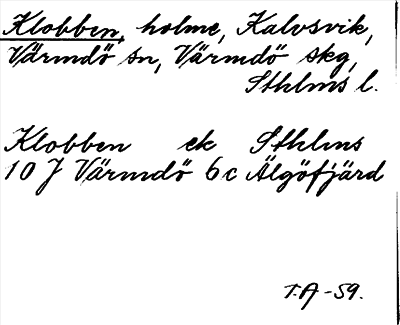 Klobben, holme, Kalvsvik,
Värmdö sn, Värmdö skg,
Sthlms l.
Klobben ek Sthlms
10 J Värmdö 6c Älgöfjärd
T.A -59.